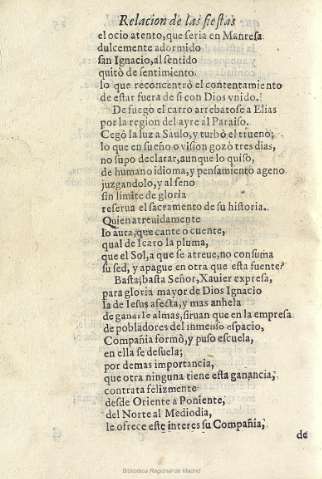 Relacion de las fiestas
el ocio atento, que seria en Manresa
dulcemente adormido
san Ignacio, al sentido
quitò de sentimiento.
lo que reconcentrò el contentamiento
de estar fuera de si con Dios vnido.
De fuego el carro arrebatose a Elias
por la region del ayre al Paraiso.
Cegò la luz a Saulo, y turbò el trueno;
lo que en sueño o vision gozò tres dias,
no supo declarar, aunque lo quiso,
de humano idioma, y pensamiento ageno
juzgandolo, y al seno
sin limite de gloria
reserua el sacramento de su historia.
Quien atreuidamente
lo aura, que cante o cuente,
qual de Icaro la pluma,
que el Sol, a que se atreue, no consuma
su sed, y apague en otra que esta fuente?
Basta, basta Señor, Xauier expresa,
para gloria mayor de Dios Ignacio
la de Iesus afecta, y mas anhela
de ganarle almas, siruan que en la empresa
de pobladores del inmenso espacio,
Compañia formò, y puso escuela,
en ella se desuela;
por demas importancia,
que otra ninguna tiene esta ganancia,
contrata felizmente
desde Oriente a Poniente,
del Norte al Mediodia,
le ofrece este interes su Compañia,
de
Biblioteca Regional de Madrid